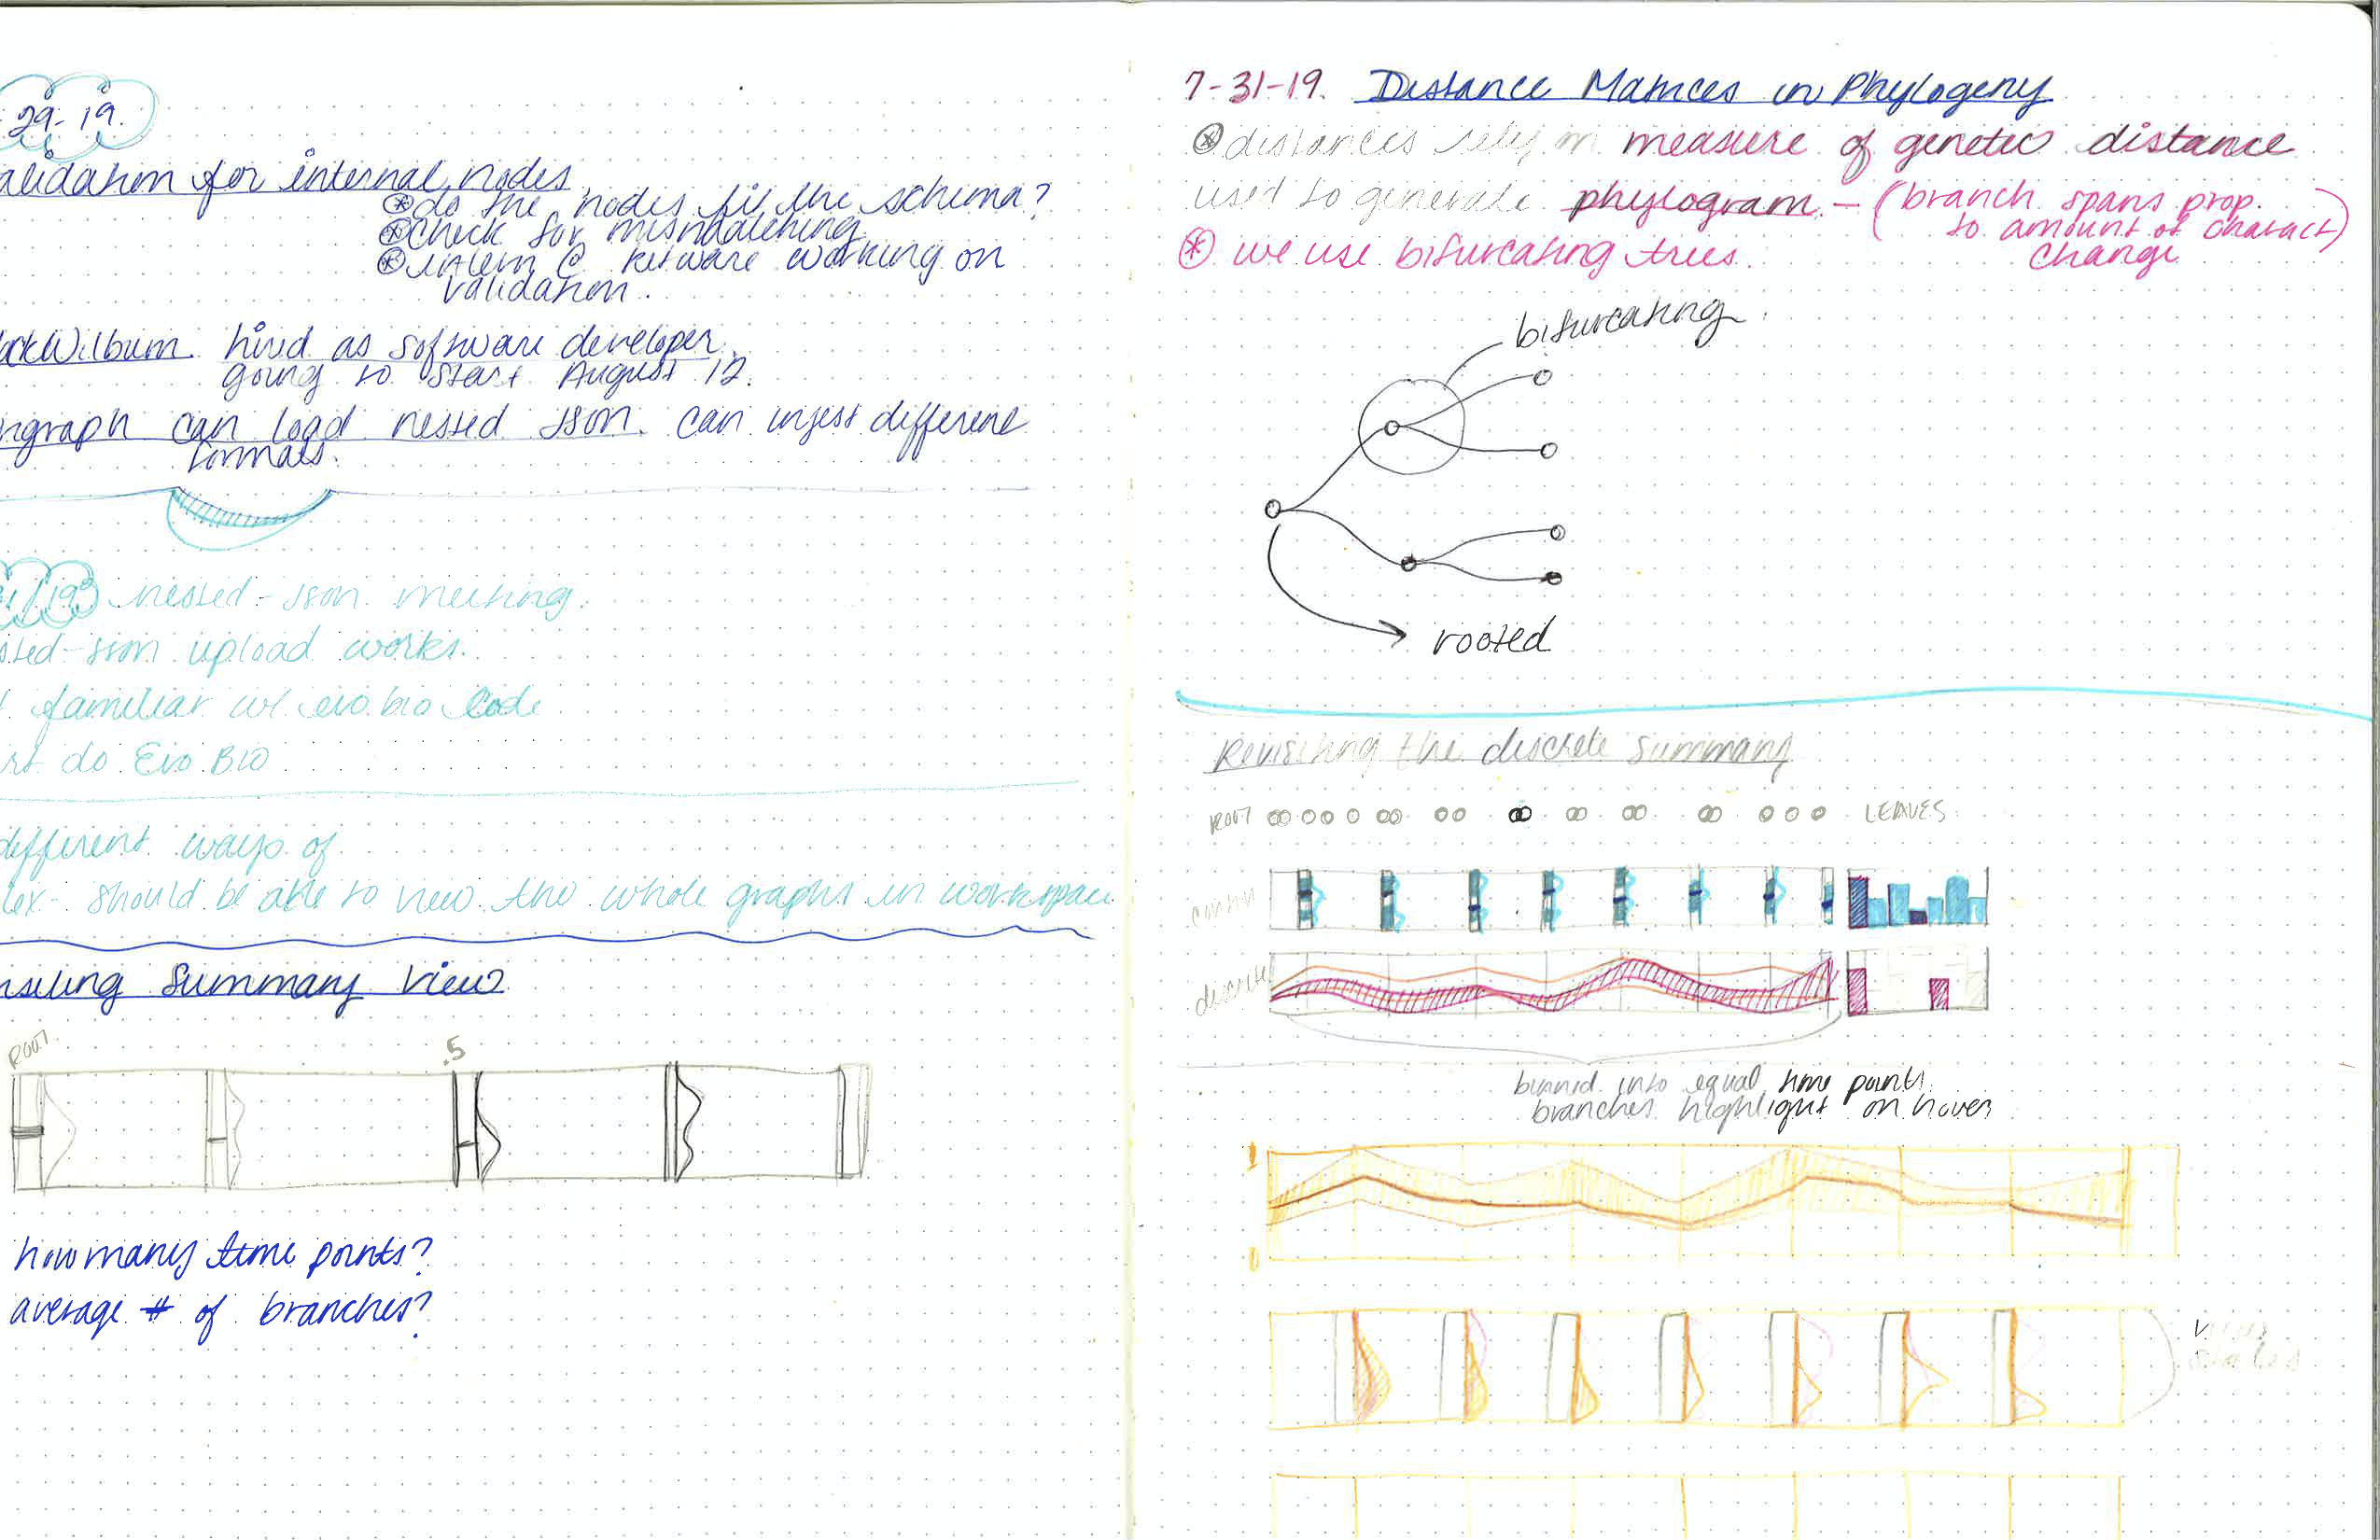 29-19.
alidation for internal nodes
⊛ do the nodes fit the schema?
⊛ check for mismatching
⊛ intern @ kitware working on
validation.
ark Wilburn. hired as software developer.
going to start August 12.
ngraph can load nested json. can injest different
formats.
1/19 nested-json meeting
sted-json upload works.
familiar w/ evo bio code
rt do Evo Bio
different ways of
lex- should be able to view the whole graphs in workspace
Summary View
ROOT
.5
how many time points?
average # of branches?
7-31-19. Distance Matrices in Phylogeny
⊛ distances rely on measure of genetic distance
used to generate phylogram - (branch spans prop.
to amount of charact
change)
⊛ we use bifurcating trees.
bifurcating
rooted
Revisiting the discrete summary
ROOT LEAVES
discrete
binned into equal time points
branches highlight on hover
1
0
states